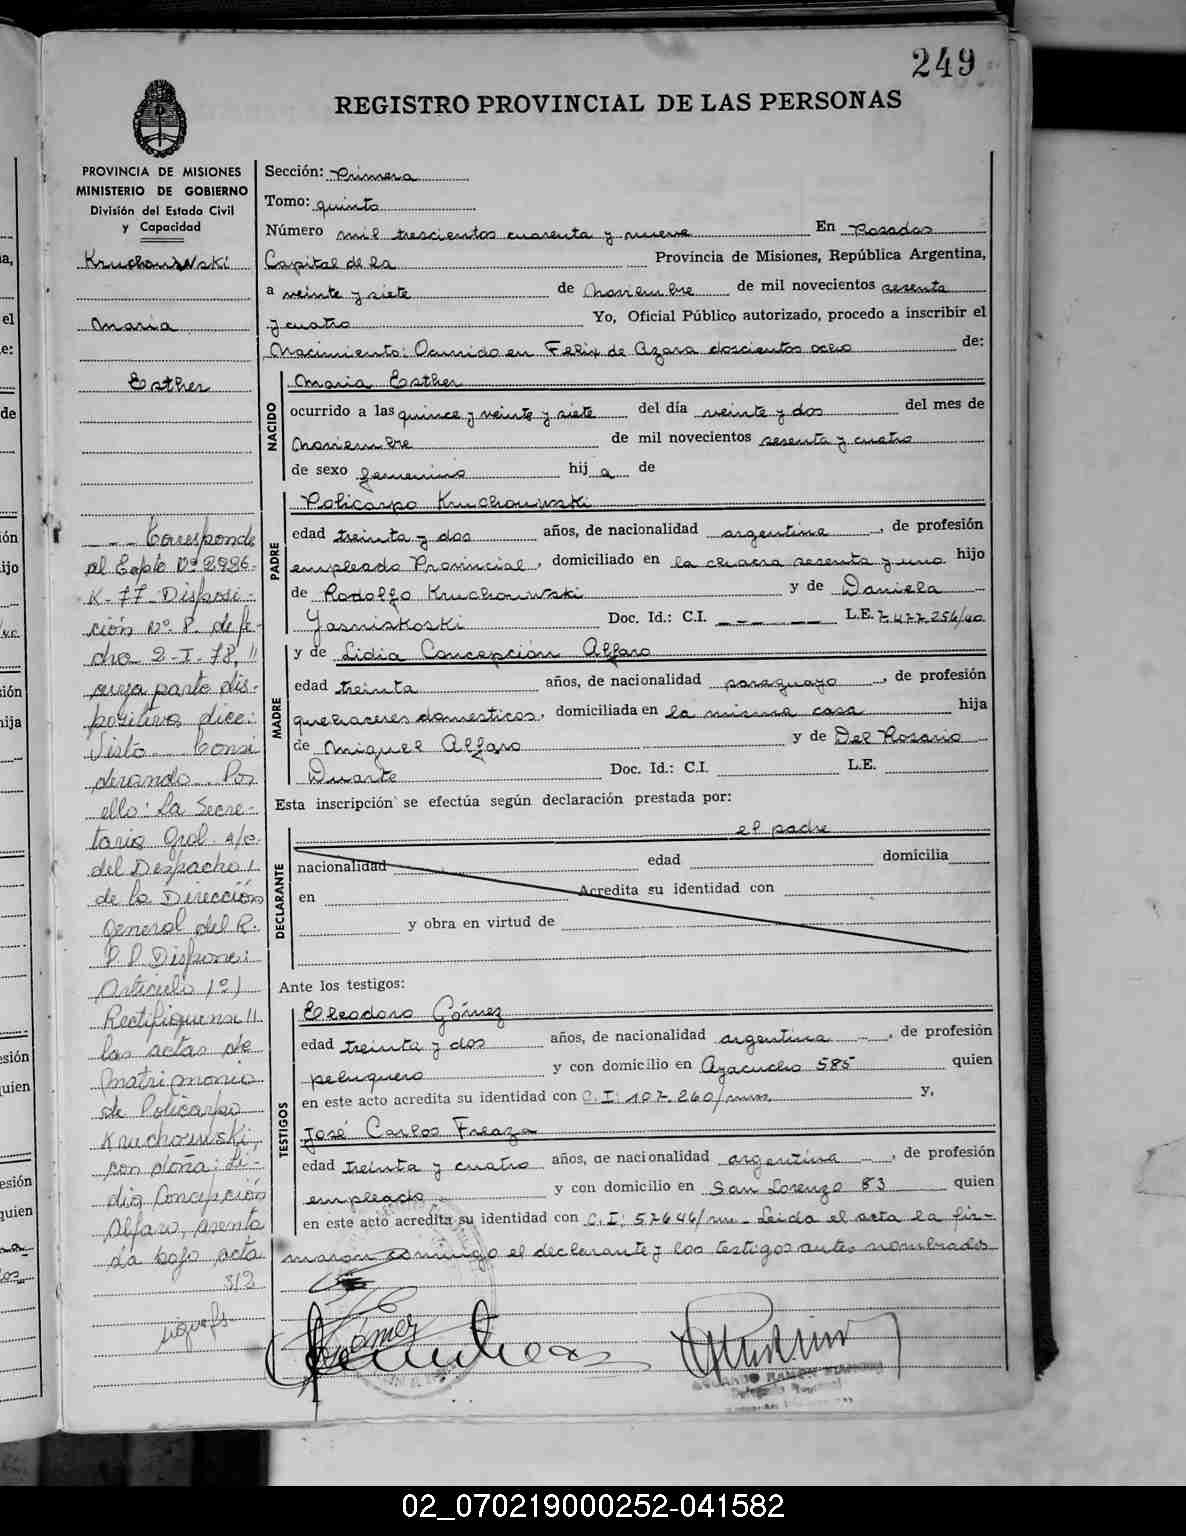 249
REGISTRO PROVINCIAL DE LAS PERSONAS
PROVINCIA DE MISIONES
MINISTERIO DE GOBIERNO
División del Estado Civil
y Capacidad
Kruchowski
Maria
Esther
Sección: Primera
Tomo: quinto
Número mil trescientos cuarenta y nueve En Posadas
Capital de la Provincia de Misiones, República Argentina,
a veinte y siete de Noviembre de mil novecientos sesenta
y cuatro Yo, Oficial Público autorizado, procedo a inscribir el
Nacimiento: Ocurrido en Felix de Azara doscientos ocho de:
NACIDO
Maria Esther
ocurrido a las quince y veinte y siete del día veinte y dos del mes de
Noviembre de mil novecientos sesenta y cuatro
de sexo femenino hij a de
PADRE
Policarpo Kruchowski
edad treinta y dos años, de nacionalidad argentina, de profesión
empleado Provincial, domiciliado en la chacra sesenta y uno hijo
de Rodolfo Kruchowski y de Daniela
Yasniskoski Doc. Id.: C.I. L.E. 7.477.256/40
MADRE
y de Lidia Concepción Alfaro
edad treinta años, de nacionalidad paraguaya, de profesión
quehaceres domesticos, domiciliada en la misma casa hija
de Miguel Alfaro y de Del Rosario
Duarte Doc. Id.: C.I. L.E.
Esta inscripción se efectúa según declaración prestada por:
DECLARANTE
el padre
nacionalidad edad domicilia
en Acredita su identidad con
y obra en virtud de
Ante los testigos:
TESTIGOS
Eleodoro Gómez
edad treinta y dos años, de nacionalidad argentina, de profesión
peluquero y con domicilio en Ayacucho 585 quien
en este acto acredita su identidad con C.I: 107.260/mnes. y,
José Carlos Freaza
edad treinta y cuatro años, de nacionalidad argentina, de profesión
empleado y con domicilio en San Lorenzo 83 quien
en este acto acredita su identidad con C.I: 57646/mn. Leida el acta la fir-
maron conmigo el declarante y los testigos antes nombrados
Corresponde
al Expte Nº 2986-
K-77- Disposi-
ción Nº. P. de fe-
cha 2-I-78, "
cuya parte dis-
positiva dice:
Visto.. Consi
derando.. Por
ello: La Secre-
taria Gral. a/c.
del Despacho
de la Dirección
General del R.
P. P. Dispone:
Artículo 1º)
Rectifiquense "
las actas de
matrimonio
de Policarpo
Kruchowski,
con doña: Li-
dia Concepción
Alfaro, asenta
da bajo acta
313
Gómez
02_070219000252-041582